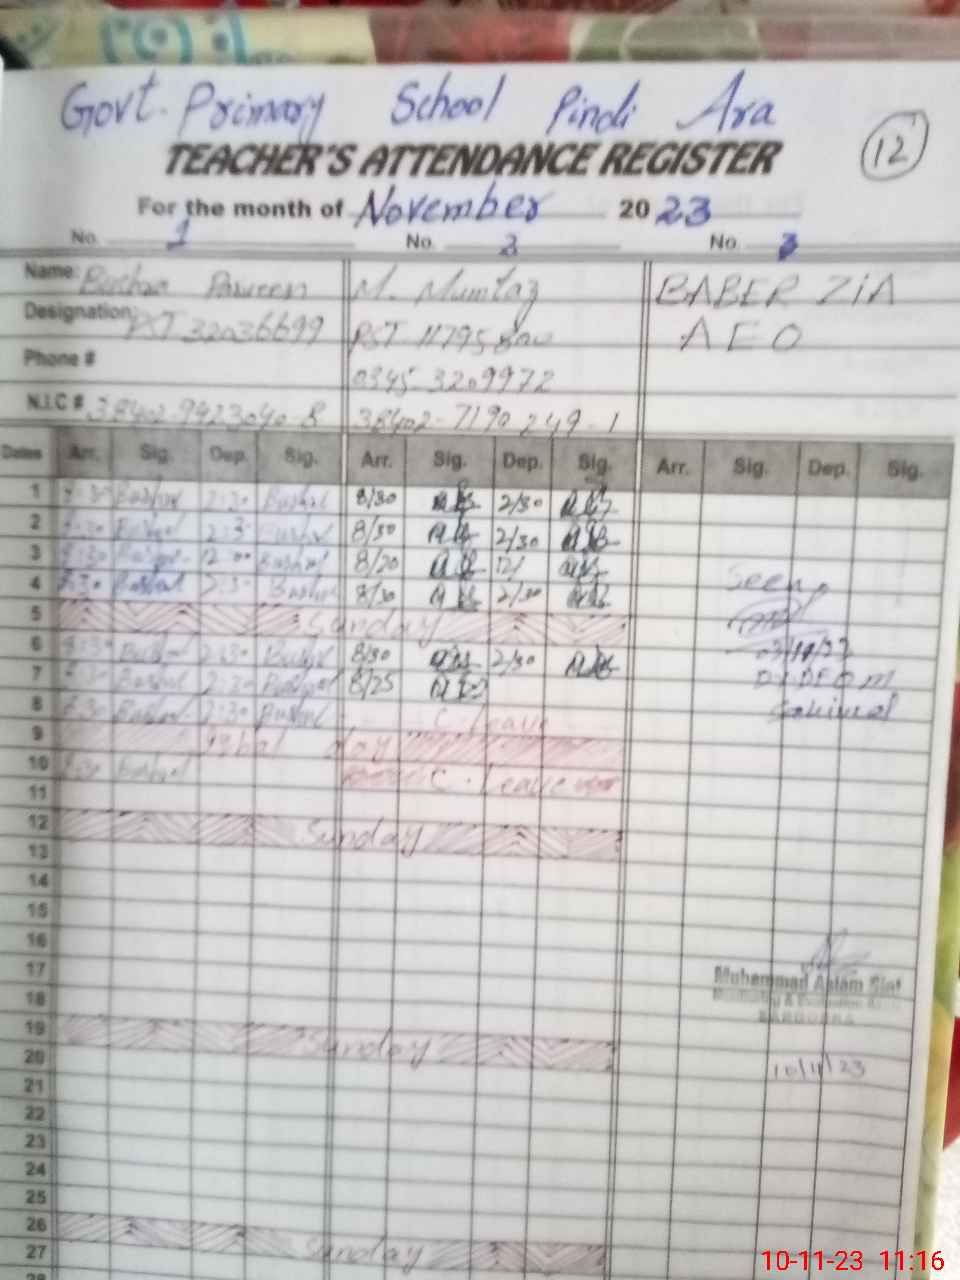 Govt. Primary School Pindi Ara
TEACHER'S ATTENDANCE REGISTER
12
For the month of November 2023
No. 1 No. 2 No. 3
Name: Bushra Parveen M. Mumtaz BABER ZIA
Designation: PST 32036699 PST 11795 AEO
Phone # 0345-3209972
N.I.C # 38402-9423040-8 38402-7190249-1
Dates Arr. Sig. Dep. Sig. Arr. Sig. Dep. Sig. Arr. Sig. Dep. Sig.
1 8:30 Bushra 2:30 Bushra 8/30 2/30
2 8:30 Bushra 2:30 Bushra 8/30 2/30
3 8:30 Bushra 12:00 Bushra 8/20 12/
4 8:30 Bushra 2:30 Bushra 8/30 2/30
Seen
5 Sunday
6 8:30 Bushra 2:30 Bushra 8/30 2/30
7 Bushra 2:30 Bushra 8/25
8 8:30 Bushra 2:30 Bushra C. Leave
Dy DEO M
Sahiwal
9 Iqbal day
10 8:30 Bushra C. Leave
11
12 Sunday
13
14
15
16
17
Muhammad Aslam
18
19 Sunday
20
10/11/23
21
22
23
24
25
26 Sunday
27
28
10-11-23 11:16